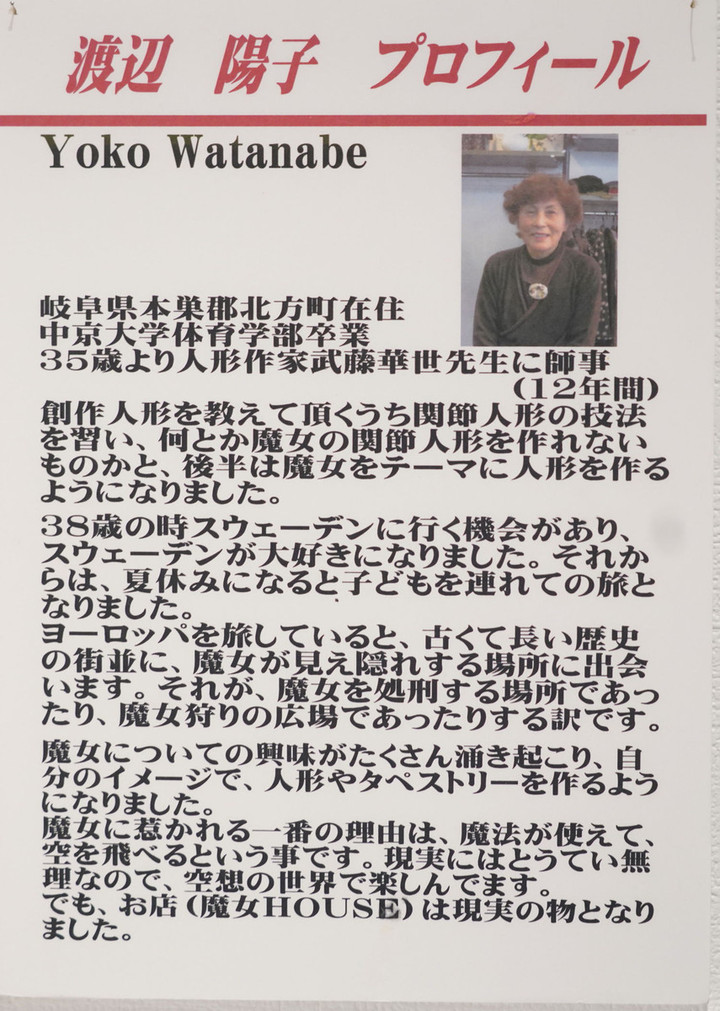 渡辺　陽子　プロフィール
Yoko Watanabe
岐阜県本巣郡北方町在住
中京大学体育学部卒業
35歳より人形作家武藤華世先生に師事
(12年間)
創作人形を教えて頂くうち関節人形の技法
を習い、何とか魔女の関節人形を作れない
ものかと、後半は魔女をテーマに人形を作る
ようになりました。
38歳の時スウェーデンに行く機会があり、
スウェーデンが大好きになりました。それか
らは、夏休みになると子どもを連れての旅と
なりました。
ヨーロッパを旅していると、古くて長い歴史
の街並に、魔女が見え隠れする場所に出会
います。それが、魔女を処刑する場所であっ
たり、魔女狩りの広場であったりする訳です。
魔女についての興味がたくさん涌き起こり、自
分のイメージで、人形やタペストリーを作るよう
になりました。
魔女に惹かれる一番の理由は、魔法が使えて、
空を飛べるという事です。現実にはとうてい無
理なので、空想の世界で楽しんでます。
でも、お店(魔女HOUSE)は現実の物となり
ました。